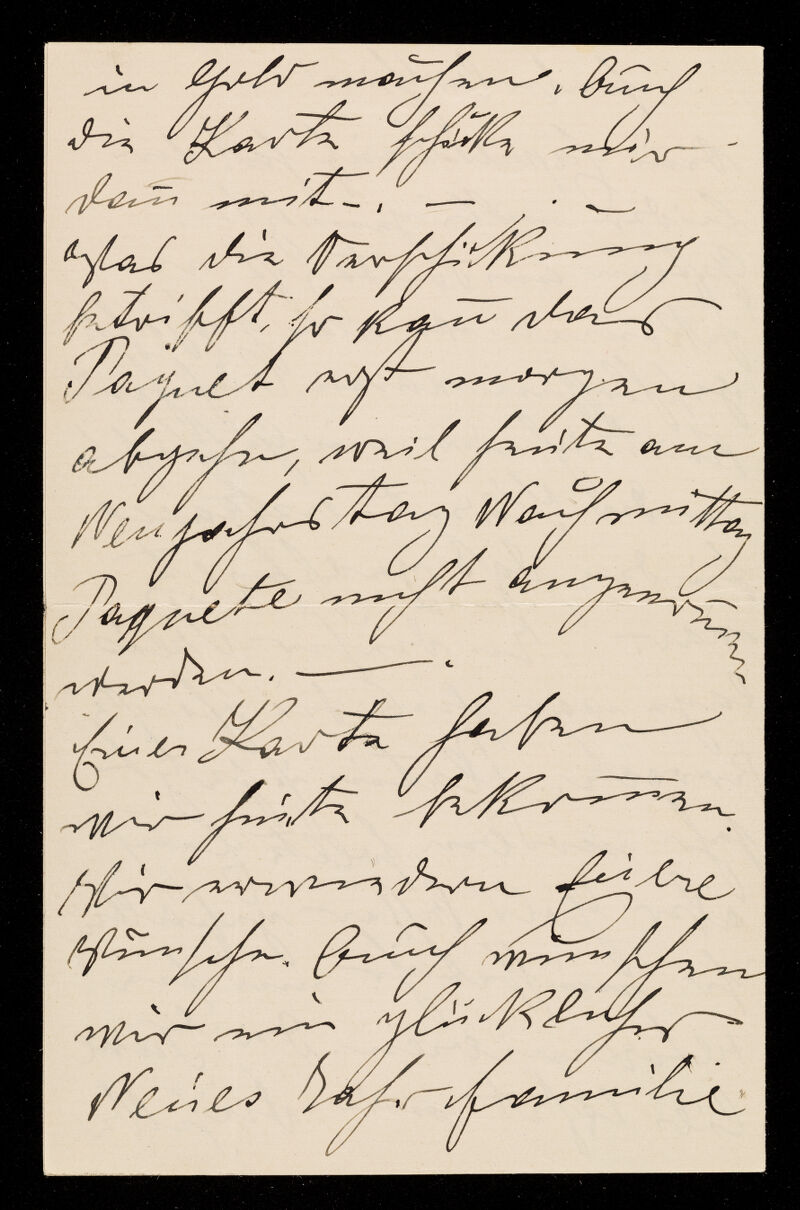 in Gold machen. Auch
die Karte schicke mir
dan̄ mit -. —
Was die Verschickung
betrifft, so kan̄ das
Paquet erst morgen
abgehn, weil heute am
Neujahrstag Nachmittag
Paquete nicht angenom̄en
werden. — .
Eure Karte haben
wir heute bekom̄en.
Wir erwiedern Euere
Wünsche. Auch wünschen
wir ein glückliches
Neues Jahr Familie